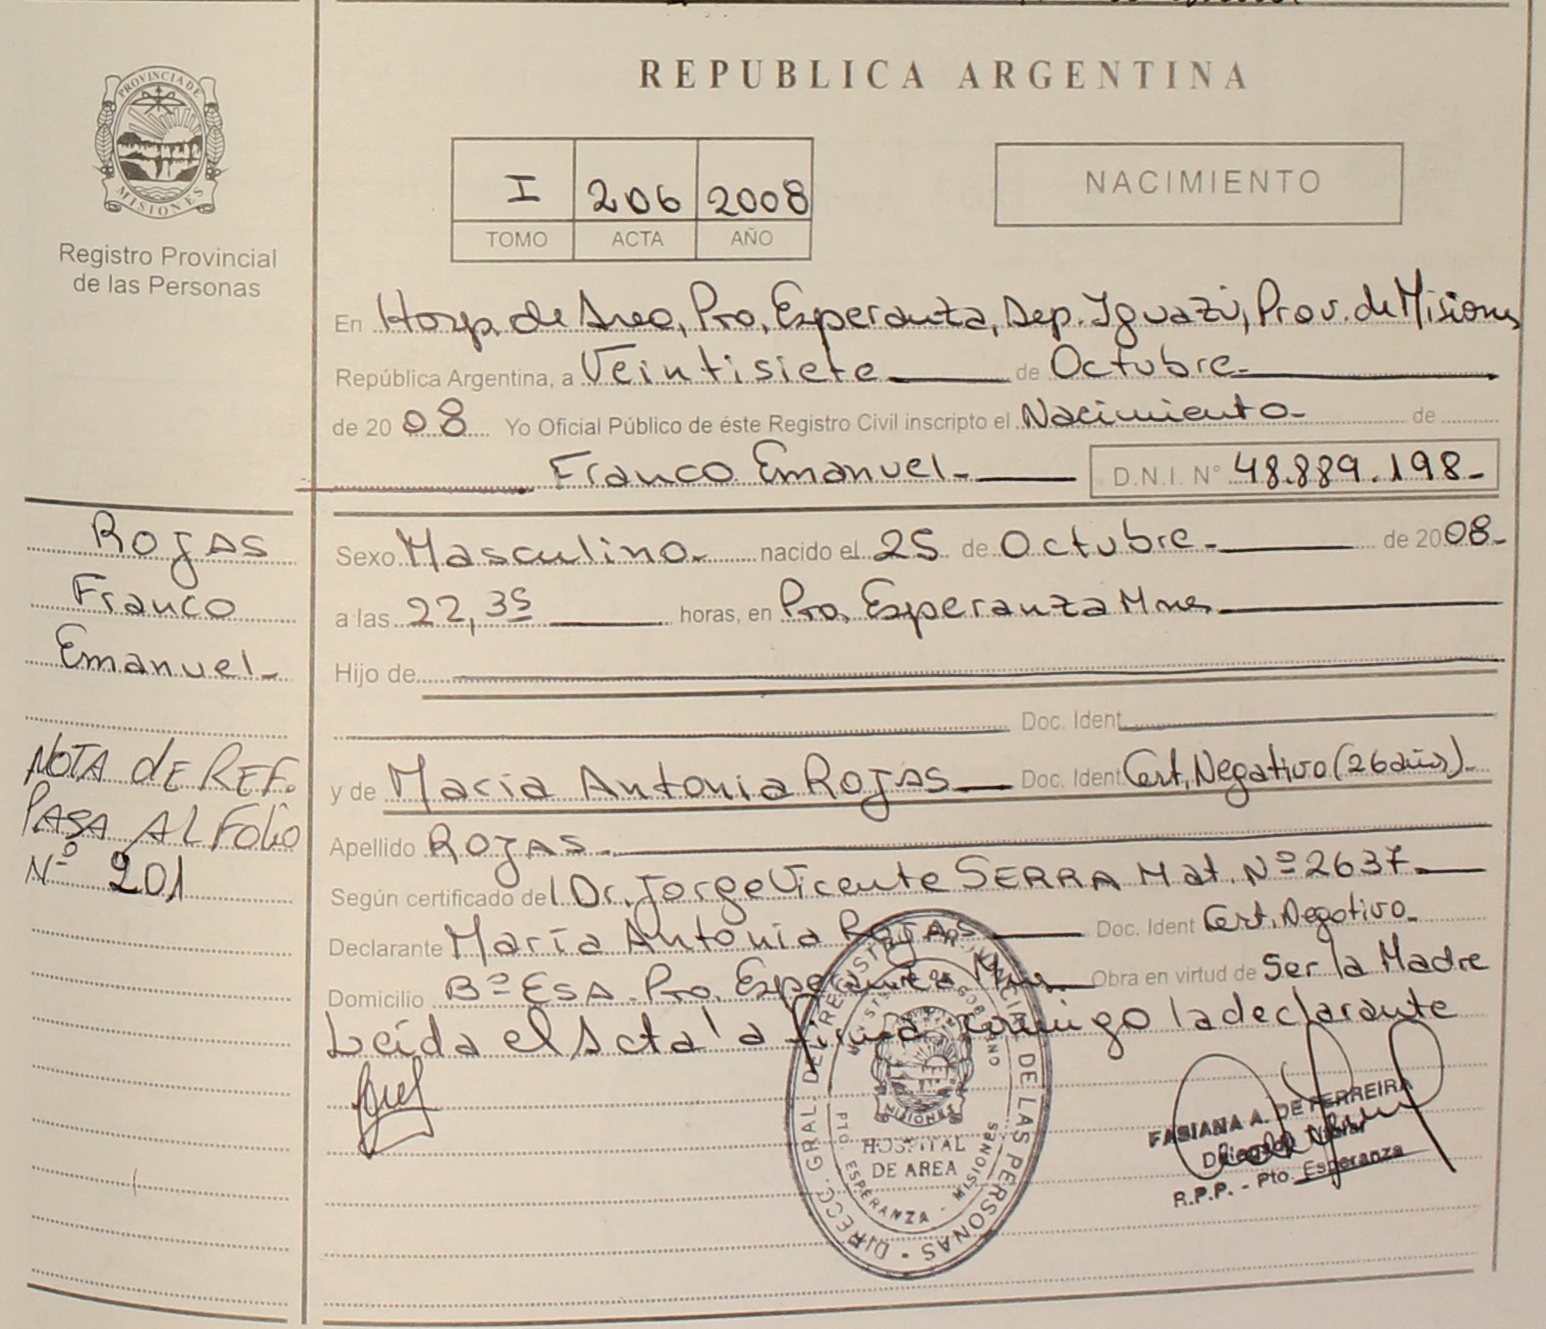 REPUBLICA ARGENTINA
PROVINCIA DE
MISIONES
Registro Provincial
de las Personas
I 206 2008
TOMO ACTA AÑO
NACIMIENTO
En Hosp. de Area, Pto, Esperanza, Dep. Iguazú, Prov. de Misiones
República Argentina, a Veintisiete de Octubre
de 2008 Yo Oficial Público de éste Registro Civil inscripto el Nacimiento- de
Franco Emanuel- D.N.I. N° 48.889.198-
Rojas
Franco
Emanuel-
Sexo Masculino- nacido el 25 de Octubre- de 2008-
a las 22,35 horas, en Pto, Esperanza Mnes
Hijo de
Doc. Ident.
y de María Antonia ROJAS Doc. Ident Cert, Negativo (26 años)-
Apellido ROJAS-
Según certificado del Dr. Jorge Vicente SERRA Mat. Nº 2637
Declarante María Antonia Rojas Doc. Ident Cert. Negativo-
Domicilio Bº ESA. Pto, Esperanza Mnes Obra en virtud de Ser la Madre
Leída el Acta la firma conmigo la declarante
NOTA de REF.
PASA AL FOLIO
Nº 201
DIRECC. GRAL. DE REGISTRO PROVINCIAL DE LAS PERSONAS
MINISTERIO DE GOBIERNO
MISIONES
HOSPITAL
DE AREA
PTO. ESPERANZA - MISIONES
FABIANA A. DE FERREIRA
R.P.P. - Pto. Esperanza